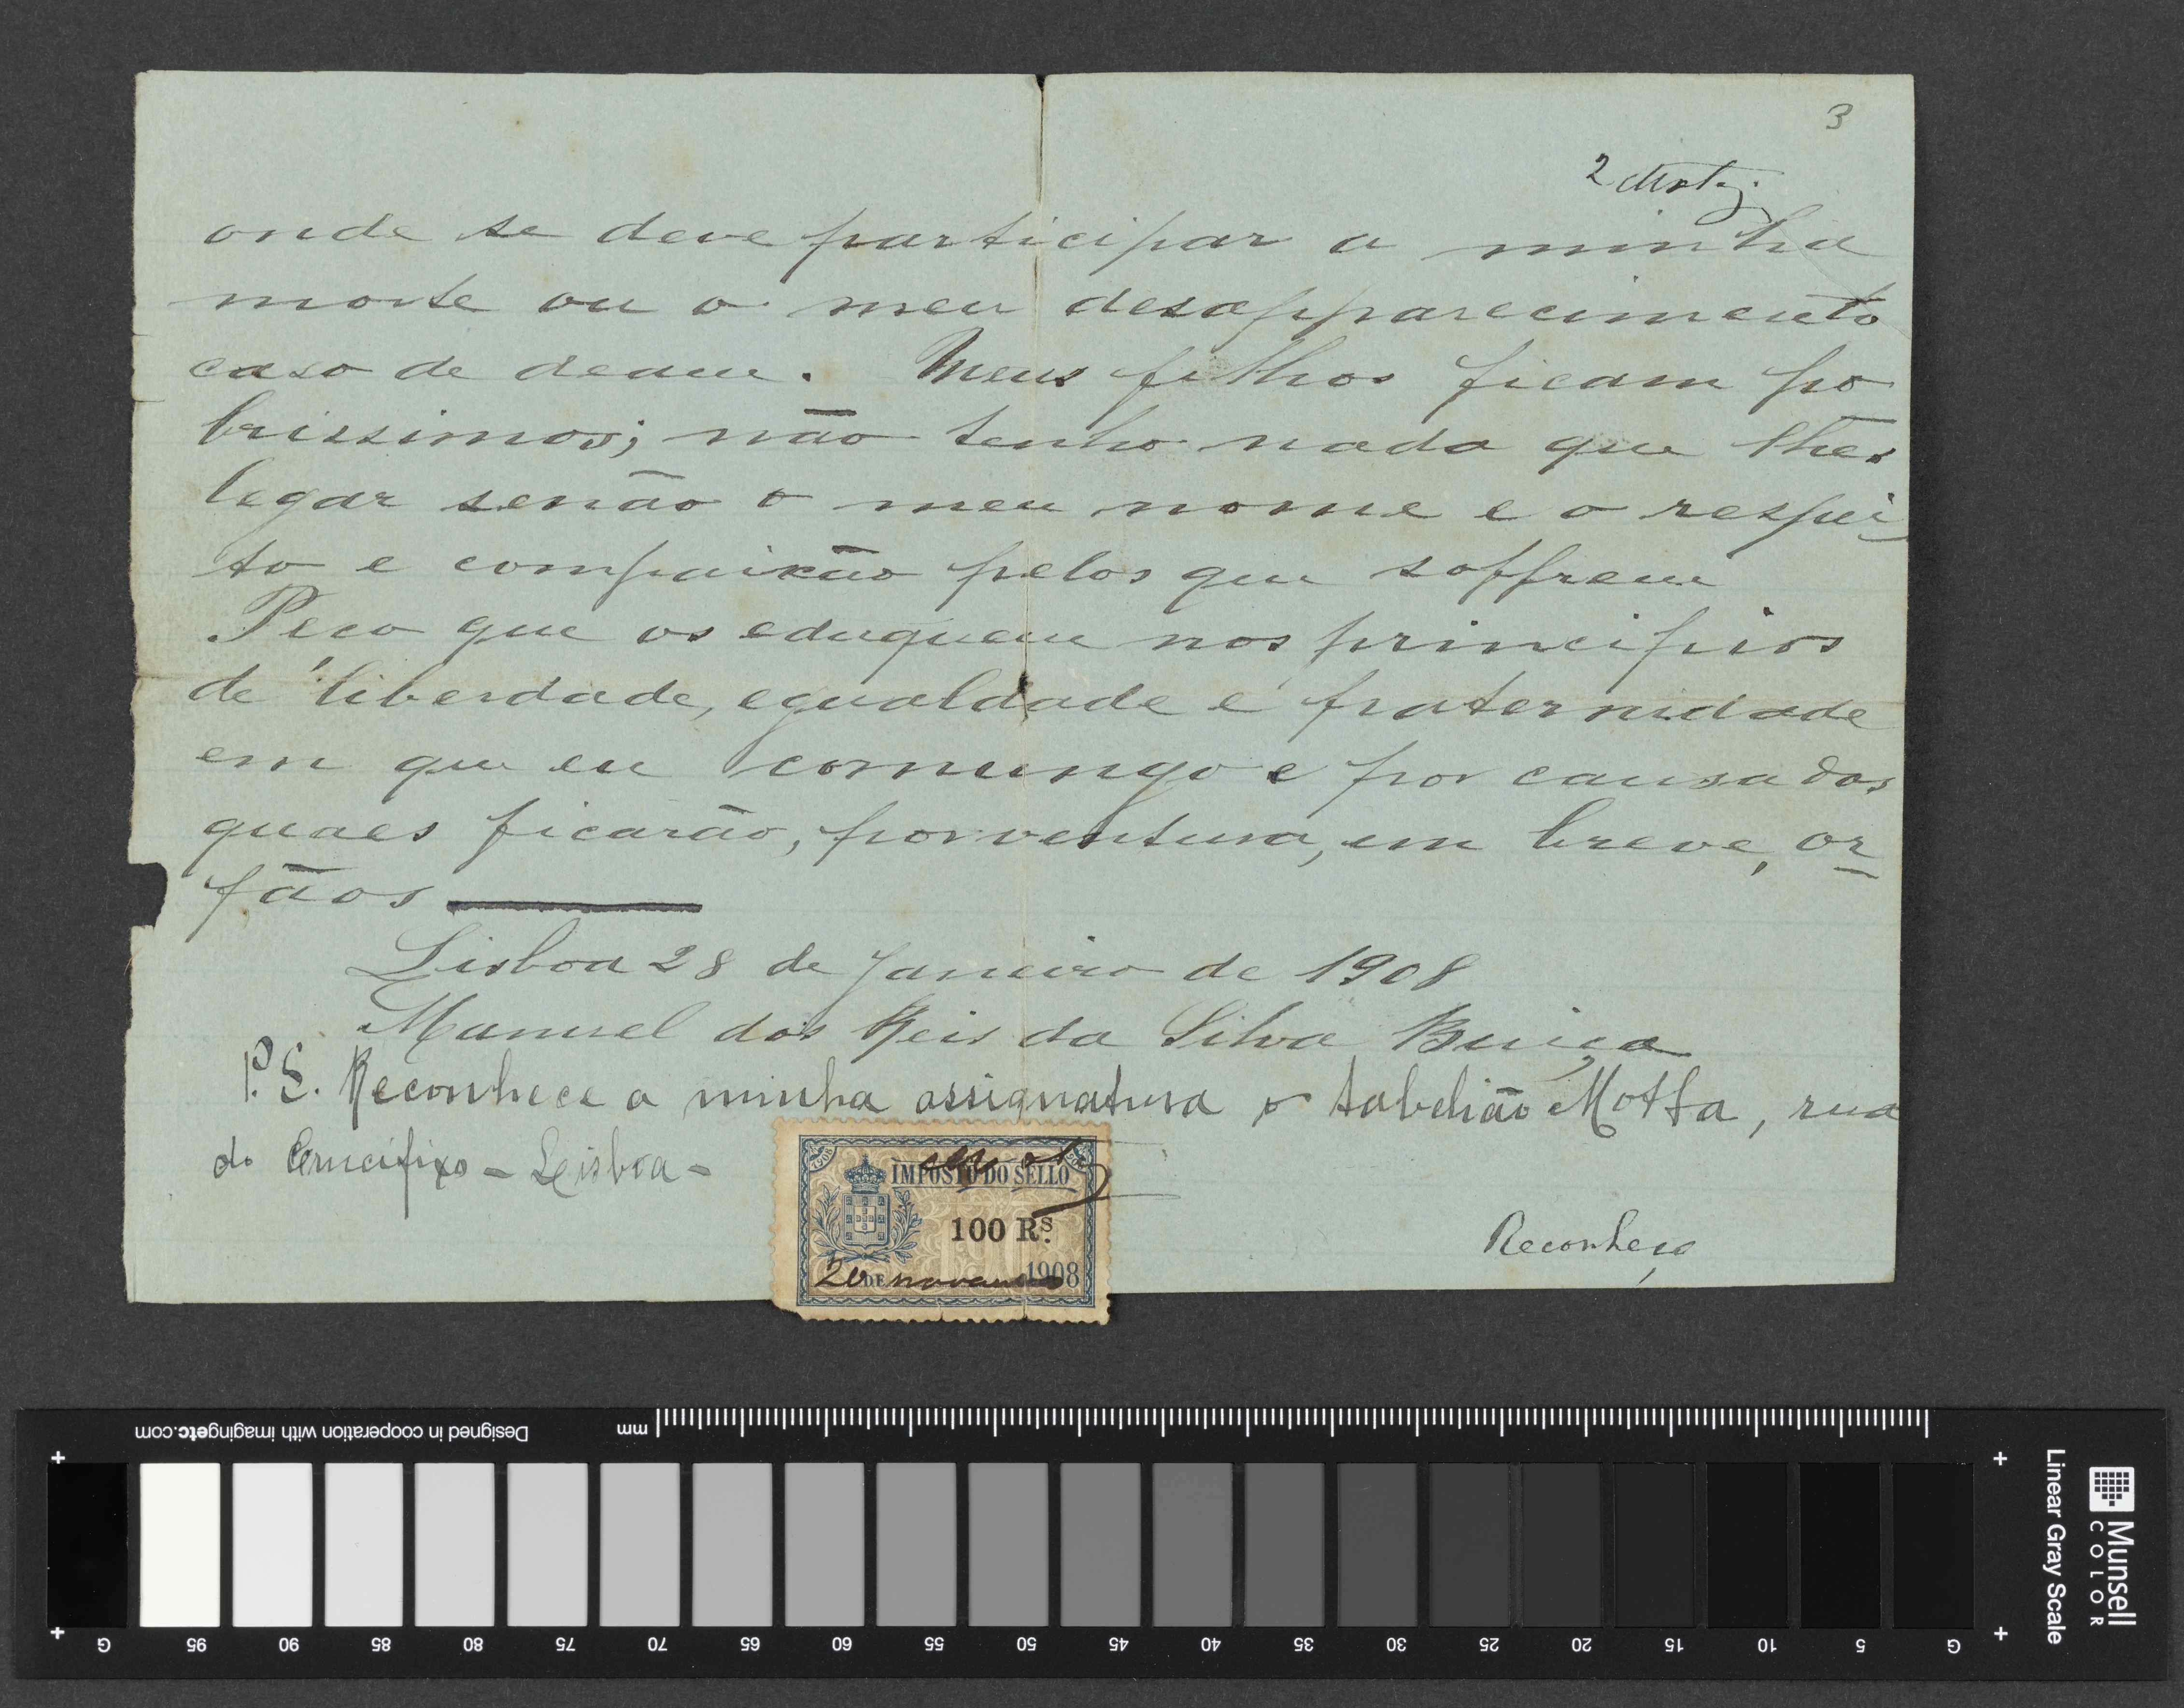 3
2
onde se deve participar a minha
morte ou o meu desapparecimento
caso se deem. Meus filhos ficam po
brissimos; não tenho nada que lhes
legar senão o meu nome e o respei
to e compaixão pelos que soffrem
Peço que os eduquem nos principios
de liberdade, egualdade e fraternidade
em que eu comungo e por causa dos
quaes ficarão, porventura, em breve, or
fãos
Lisboa 28 de Janeiro de 1908
Manuel dos Reis da Silva Buiça
P.S. Reconhece a minha assignatura o tabelião Motta, rua
do Crucifixo - Lisboa -
1908
IMPOSTO DO SELLO
100 Rs.
DE 1908
Reconheço
mm
Designed in cooperation with imagingetc.com
G 95 90 85 80 75 70 65 60 55 50 45 40 35 30 25 20 15 10 5 G
Linear Gray Scale
Munsell
COLOR